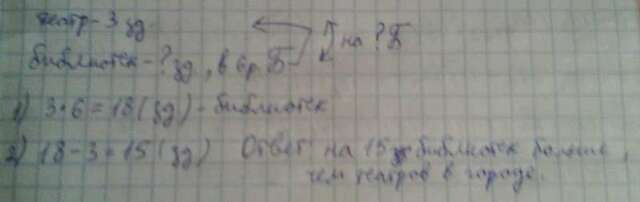 театр - 3 зд.
библиотек - ? зд., в 6р. Б } на ? Б
1) 3·6=18(зд) - библиотек
2) 18-3=15(зд) Ответ: на 15 библиотек больше,
чем театров в городе.